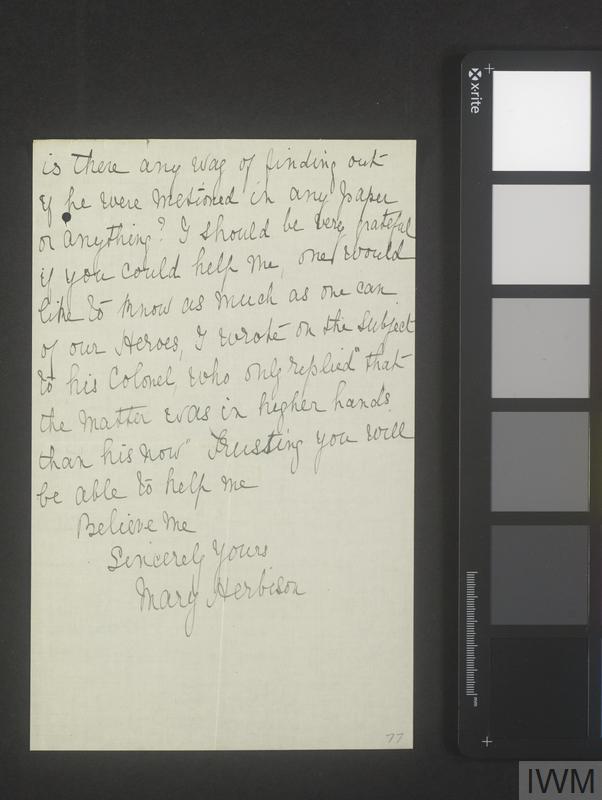 is there any way of finding out
if he were mestioned in any paper
or anything? I should be very grateful
if you could help me, one would
like to know as much as one can
of our Heroes, I wrote on the subject
to his Colonel, who only replied "that
the matter was in higher hands
than his now" Trusting you will
be able to help me
Believe me
Sincerely Yours
Mary Herbison
77
x-rite
mm
IWM